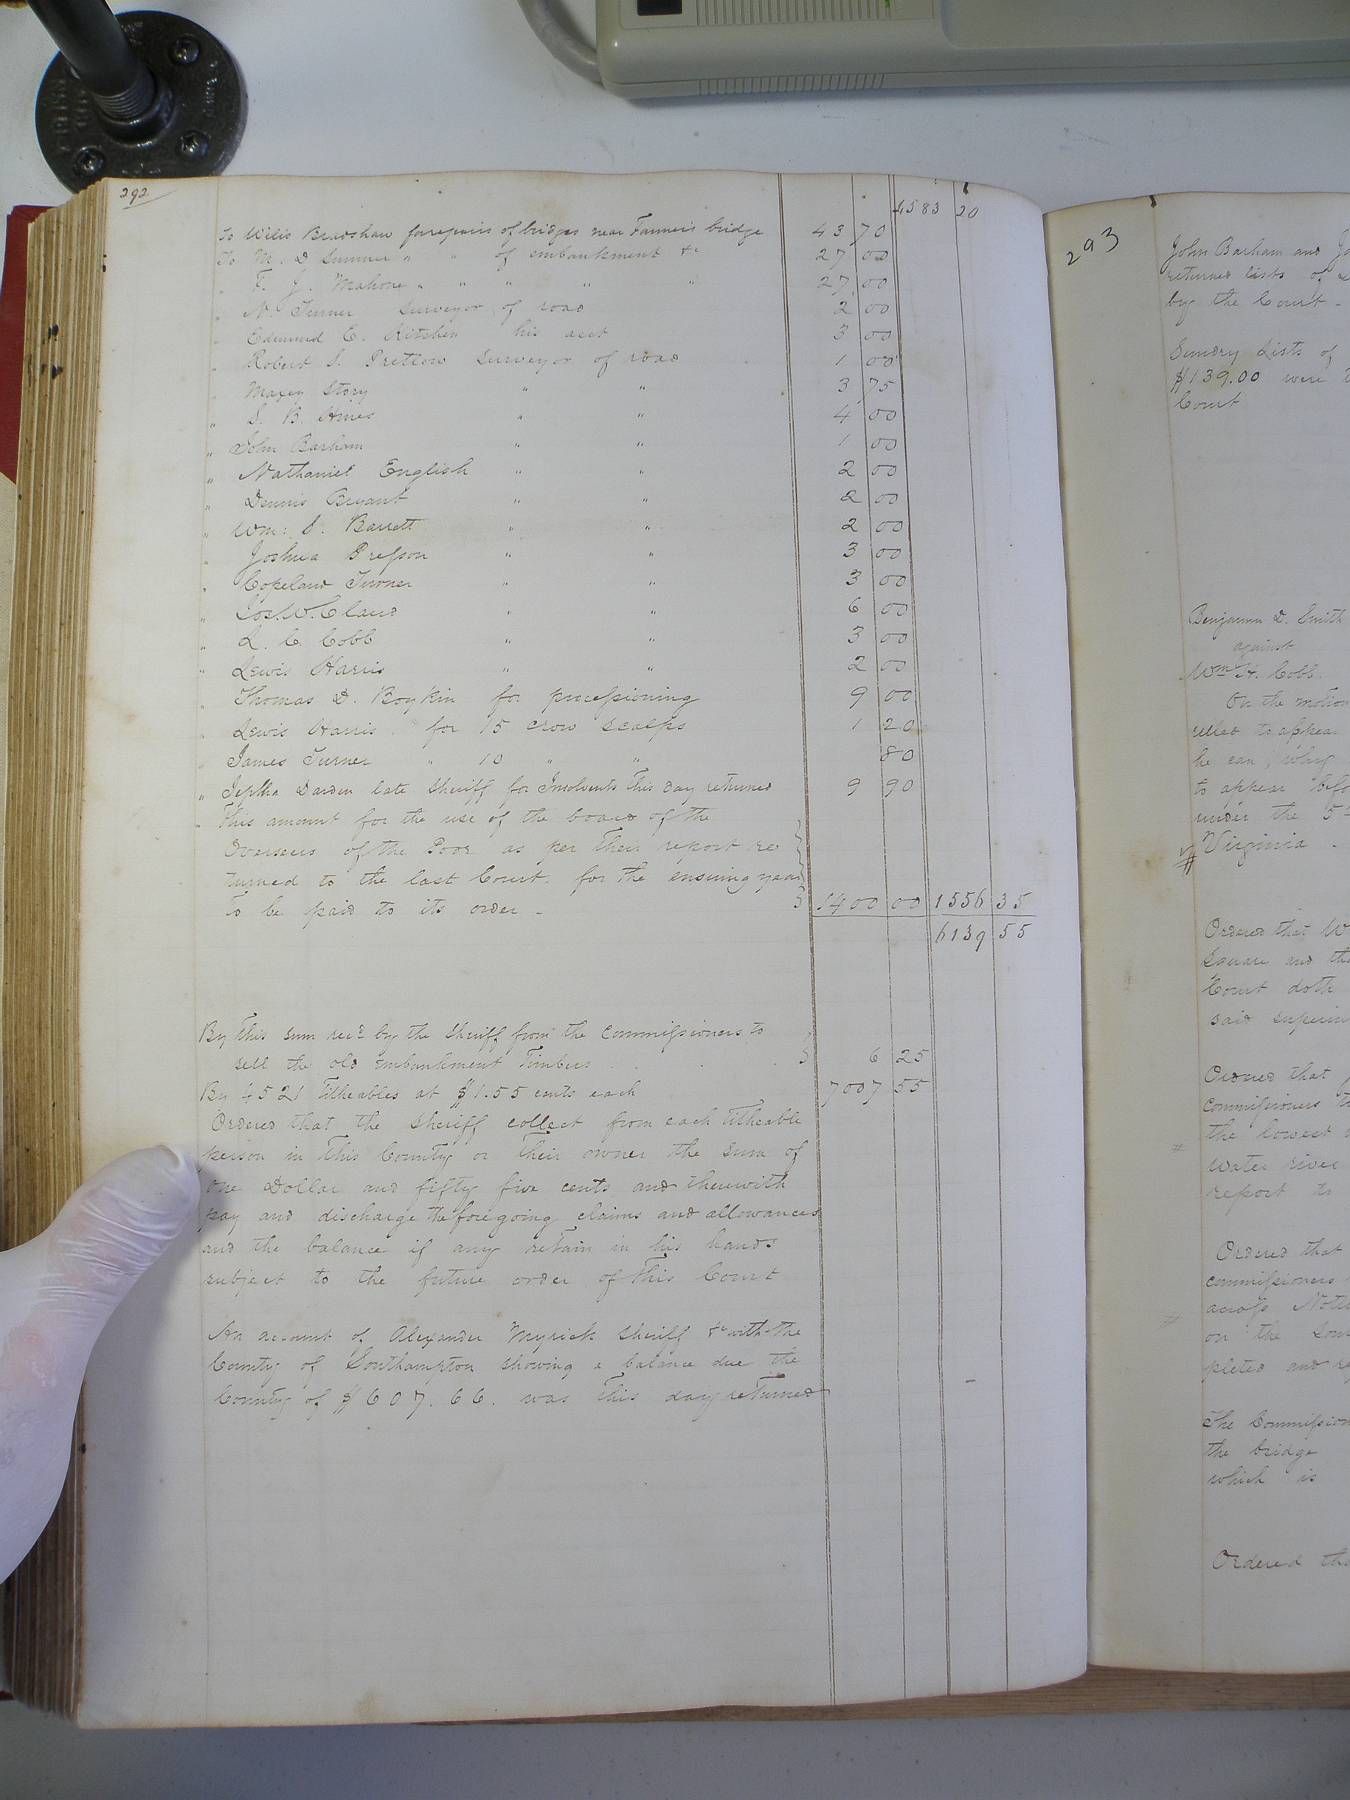 292
4583 20
To Willis Bradshaw for repairs of bridges near Farmer's bridge 43 70
To M. D Sumner " " of embankment &c 27 00
" F. J. Mahone " " " " " 27 00
" N. Turner Surveyor of road 2 00
" Edmund C. Kitchen his acct 3 00
" Robert S. Pretlow Surveyor of road 1 00
" Maxey Story " " 3 75
" S. B. Hines " " 4 00
" John Barham " " 1 00
" Nathaniel English " " 2 00
" Dennis Bryant " " 2 00
" Wm: S. Barrett " " 2 00
" Joshua Presson " " 3 00
" Copeland Turner " " 3 00
" Jos. W. Claud " " 6 00
" L. C. Cobb " " 3 00
" Lewis Harris " " 2 00
" Thomas D. Boykin for processioning 9 00
" Lewis Harris for 15 crow scalps 1 20
" James Turner " 10 " " 80
" Jeptha Darden late Sheriff for Insolvents this day returned 9 90
" This amount for the use of the board of the
Overseers of the Poor as per their report re
turned to the last Court. for the ensuing year
to be paid to its order - 1400 00 1556 35
6139 55
By this sum recd by the Sheriff from the Commissioners to
sell the old embankment Timbers 6 25
By 4521 Titheables at $1.55 cents each 7007 55
Ordered that the Sheriff collect from each titheable
person in this County or their owner the sum of
one Dollar and fifty five cents and therewith
pay and discharge the foregoing claims and allowances
and the balance if any retain in his hands
subject to the future order of this Court
An account of Alexander Myrick Sheriff &c with the
County of Southampton showing a balance due the
County of $607.66. was this day returned
293
John Barham and
returned lists of
by the Court -
Sundry Lists of
$139.00 were
Court
Benjamin D. Smith
against
Wm H. Cobb.
On the motion
rilled to appear
he can, why
to appear befo
under the 5th
# Virginia -
Ordered that W
Square and the
Court doth
said superin
Ordered that
commissioners
# the lowest
water river
report to
Ordered that
commissioners
# across Notto
on the Sou
pleted and re
The Commission
the bridge
which is
Ordered tha